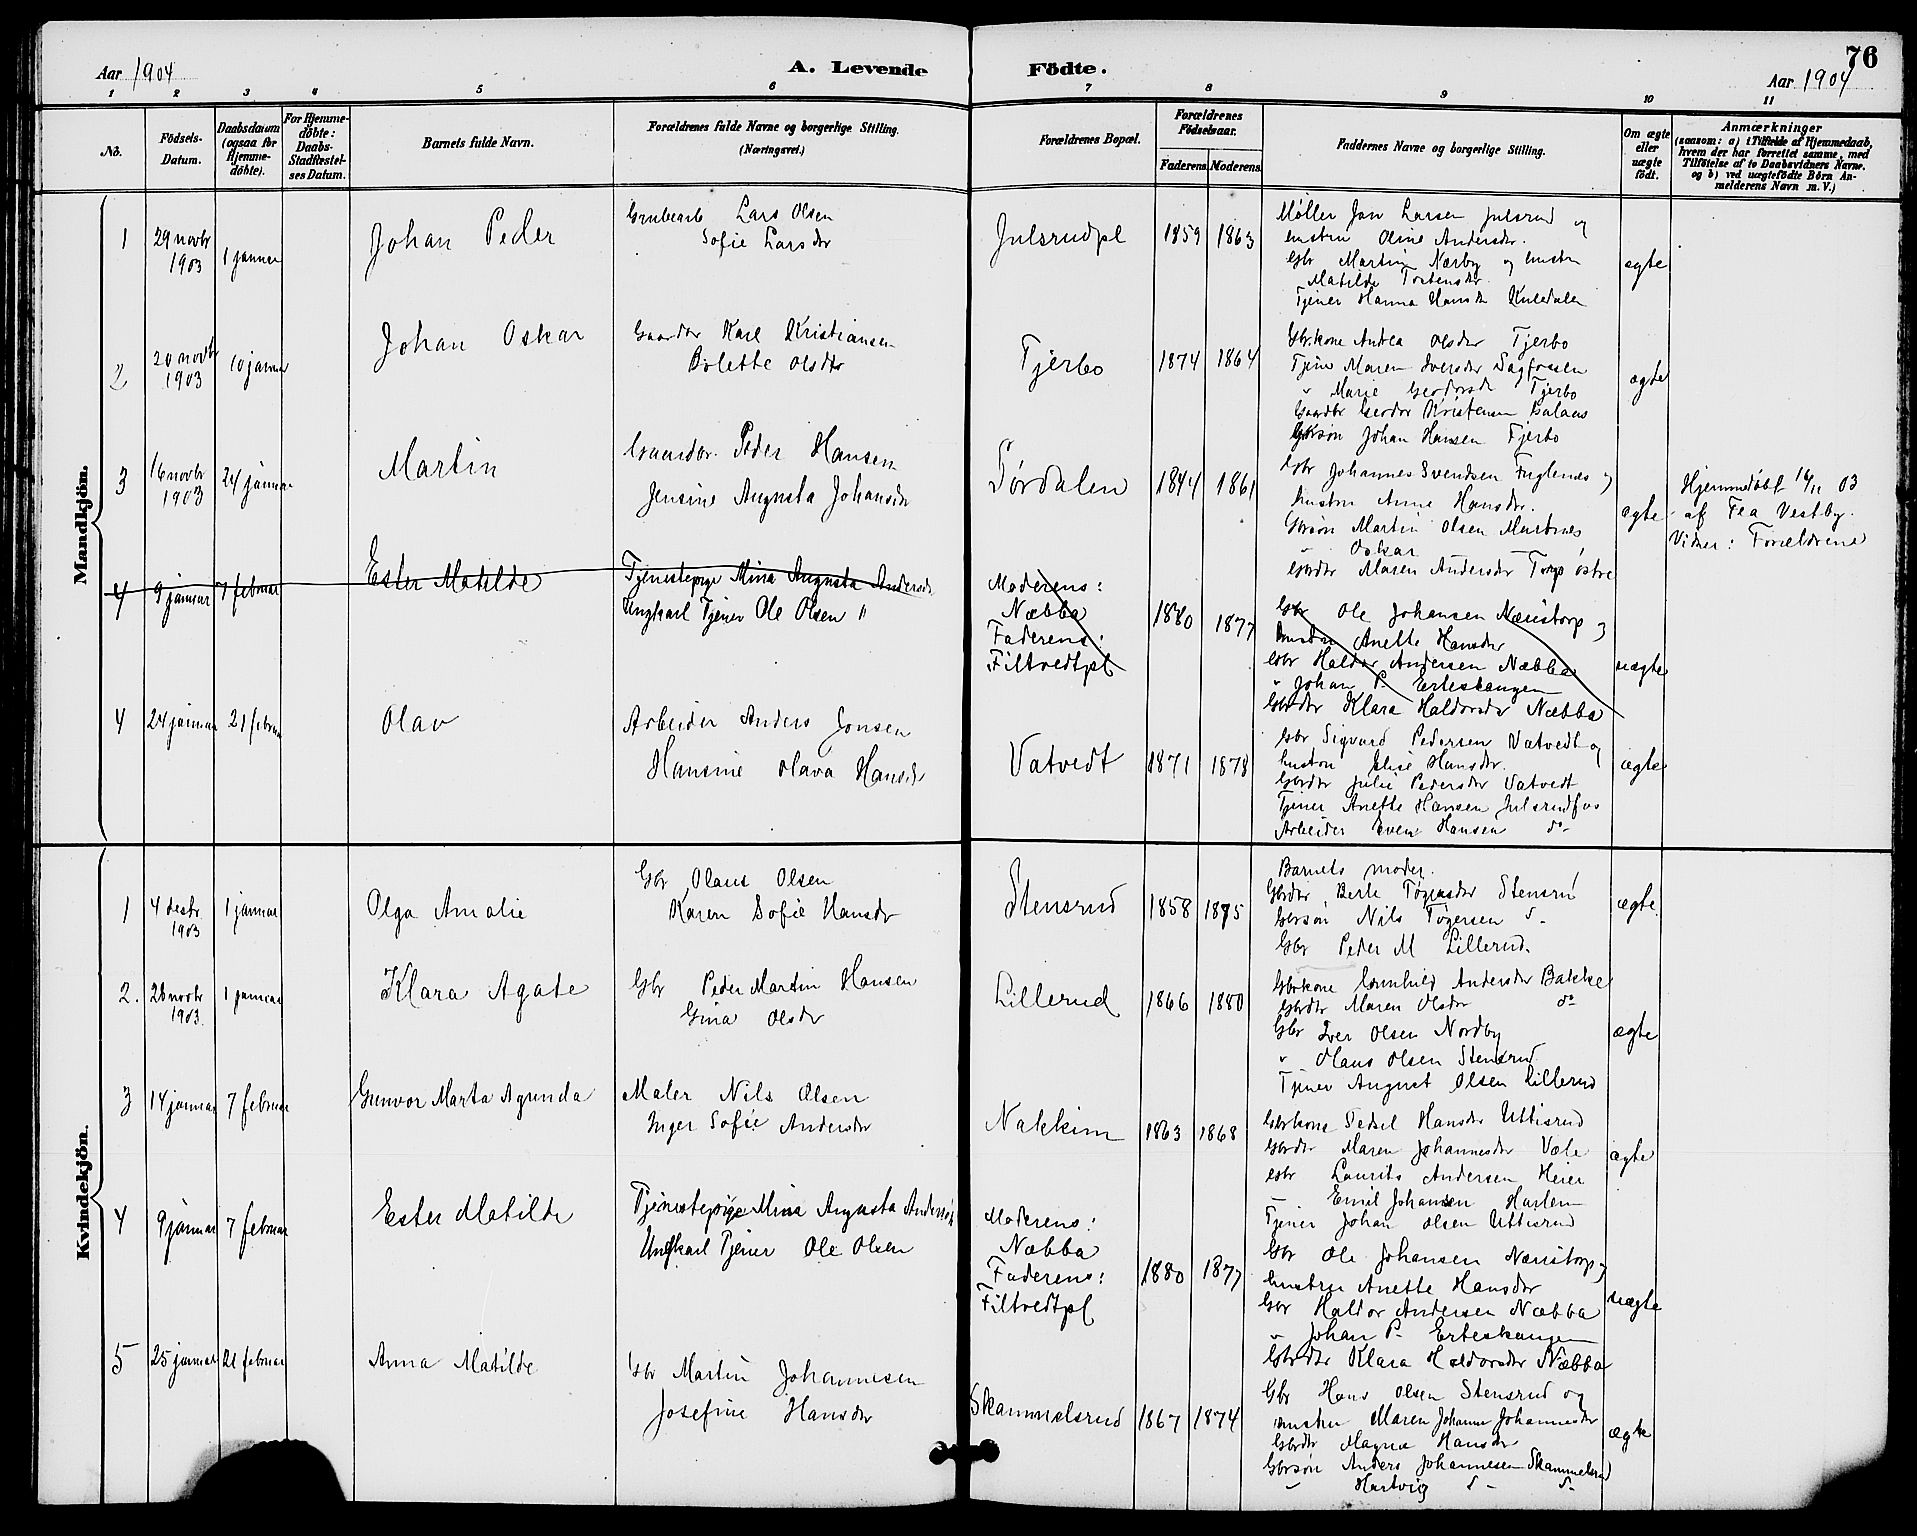 76
Aar 1904
A. Levende Födte.
Aar 1904
1 2 3 4 5 6 7 8 9 10 11
No.
Födsels-
Datum.
Daabsdatum
(ogsaa for
Hjemme-
döbte).
For Hjemme-
döbte:
Daabs-
Stadfæstel-
ses Datum.
Barnets fulde Navn.
Forældrenes fulde Navne og borgerlige Stilling.
(Næringsvei.)
Forældrenes Bopæl.
Forældrenes
Födselsaar.
Faderens. Moderens.
Faddernes Navne og borgerlige Stilling.
Om ægte
eller
uægte
födt.
Anmærkninger
(saasom: a) i Tilfælde af Hjemmedaab,
hvem der har forrettet samme, med
Tilföielse af to Daabsvidners Navne.
og b) ved uægtefödte Börn An-
melderens Navn m. V.)
Mandkjön.
1
29 novbr
1903
1 januar
Johan Peder
Grubearb Lars Olsen
Sofie Larsdr
Julsrudpl
1859 1863
Møller Jan Larsen Julsrud og
hustru Oline Andersdr.
Gbr Martin Nærby og hustru
Matilde Torstensdr.
Tjener Hanna Hansdr
ægte
2
20 novbr
1903
10 januar
Johan Oskar
Gaardbr Karl Kristiansen
Bolette Olsdtr
Tjerbo
1874 1864
Gbrkone Andrea Olsdr Tjerbo
Tjene Maren Iversdr Sagfossen
" Marie Tjerbo
Gaardbr Kristensen
Gbrsøn Johan Hansen Tjerbo
ægte
3
16 novbr
1903
24 januar
Martin
Gaardbr. Peder Hansen
Jensine Augusta Johansdr
Sørdalen
1844 1861
Gbr Johannes Svendsen Fuglenæs og
hustru Anne Hansdr.
Gbrsøn Martin Olsen
" Oskar
Gbrdtr Maren Andersdr Torp østre
ægte
Hjemmedøbt 16/11 03
af Fea Vestby.
Vidner: Forældrene
4
9 januar
7 februar
Ester Matilde
Tjenestepige Mina Augusta Andersdr
Ungkarl Tjener Ole Olsen "
Moderens:
Næbba
Faderens:
Filtvedtpl
1880 1877
Gbr Ole Johansen Næristorp og
hustru Anette Hansdr
Gbr Haldor Andersen Næbba
" Johan P. Erteskangen
Gbrdtr Klara Haldorsdr Næbba
uægte
4
24 januar
21 februar
Olav
Arbeider Anders Jonsen
Hansine Olava Hansdr
Vatvedt
1871 1878
Gbr Sigvard Pedersen Vatvedt og
hustru Elise Hansdr.
Gbrdtr Julie Pedersdr Vatvedt
Tjener Anette Hansen Julsrudfos
Arbeider Even Hansen do-
ægte
Kvindekjön.
1
4 decbr
1903
1 januar
Olga Amalie
Gbr Olaus Olsen
Karen Sofie Hansdr
Stensrud
1858 1875
Barnets moder.
Gbrdtr Berte Tøgersdr Stensrud
Gbrsøn Nils Tøgersen do-
Gbr Peder M Lillerud.
ægte
2.
28 novbr
1903.
1 januar
Klara Agate
Gbr Peder Martin Hansen
Gina Olsdr
Lillerud
1866 1880
Gbrkone Gunhild Andersdr Bakke
Gbrdtr Maren Olsdr do
Gbr Iver Olsen Nordby
" Olaus Olsen Stensrud
Tjener August Olsen Lillerud
ægte
3
14 januar
7 februar
Gunvor Marta Agunda
Maler Nils Olsen
Inger Sofie Andersdr
Nakkim
1863 1868
Gbrkone Sedsel Hansdr Uttisrud
Gbrdtr Maren Johannesdr Væle
Gbr Laurits Andersen Heier
" Emil Johansen Huslem
Tjener Johan Olsen Uttisrud
ægte
4
9 januar
7 februar
Ester Matilde
Tjenestepige Mina Augusta Andersdr
Ungkarl Tjener Ole Olsen
Moderens:
Næbba
Faderens:
Filtvedtpl
1880 1877
Gbr Ole Johansen Næristorp og
hustru Anette Hansdr
Gbr Haldor Andersen Næbba
" Johan P. Erteskangen
Gbrdtr Klara Haldorsdr Næbba
uægte
5
25 januar
21 februar
Anna Matilde
Gbr Martin Johannesen
Josefine Hansdr
Skammelsrud
1867 1874
Gbr Hans Olsen Stensrud og
hustru Maren Johanne Johannesdr
Gbrdtr Magna Hansdr
Gbrsøn Anders Johannesen Skammelsrud
" Hartvig do- do-
ægte